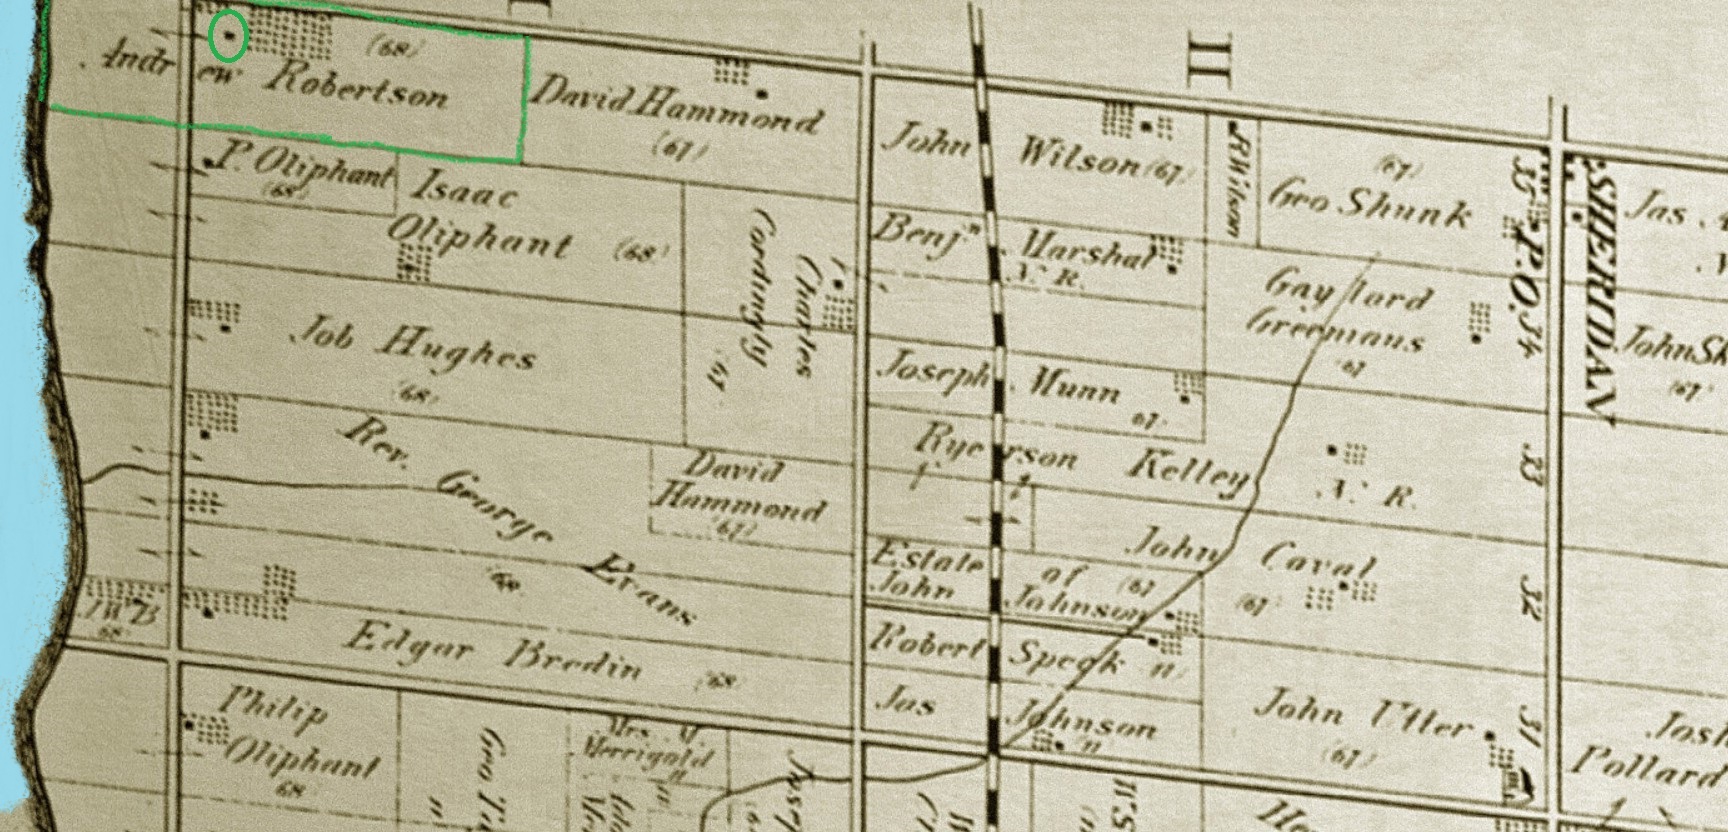 I
II
Andrew Robertson
(68)
David Hammond
(67)
John Wilson (67)
R Wilson
(67)
Geo Shunk
35
P.O. 34
SHERIDAN
Jas
P. Oliphant
(68)
Isaac
Oliphant (68)
Charles
Cordingly
67
Benjn Marshal
N. R.
Gaylord
Greemaus
67
John Sk
(67)
Job Hughes
(68)
Joseph Munn
67
Rev. George Evans
68
David
Hammond
(67)
Ryerson Kelley
N. R.
33
Estate of
John Johnson
John Caval
(67)
(67)
32
J W B
68
Edgar Bredin (68)
Robert Speck
Jas Johnson
John Utter
(67)
31
Josh
Pollard
Philip
Oliphant
68
Geo
Mrs. M.
Merrigold